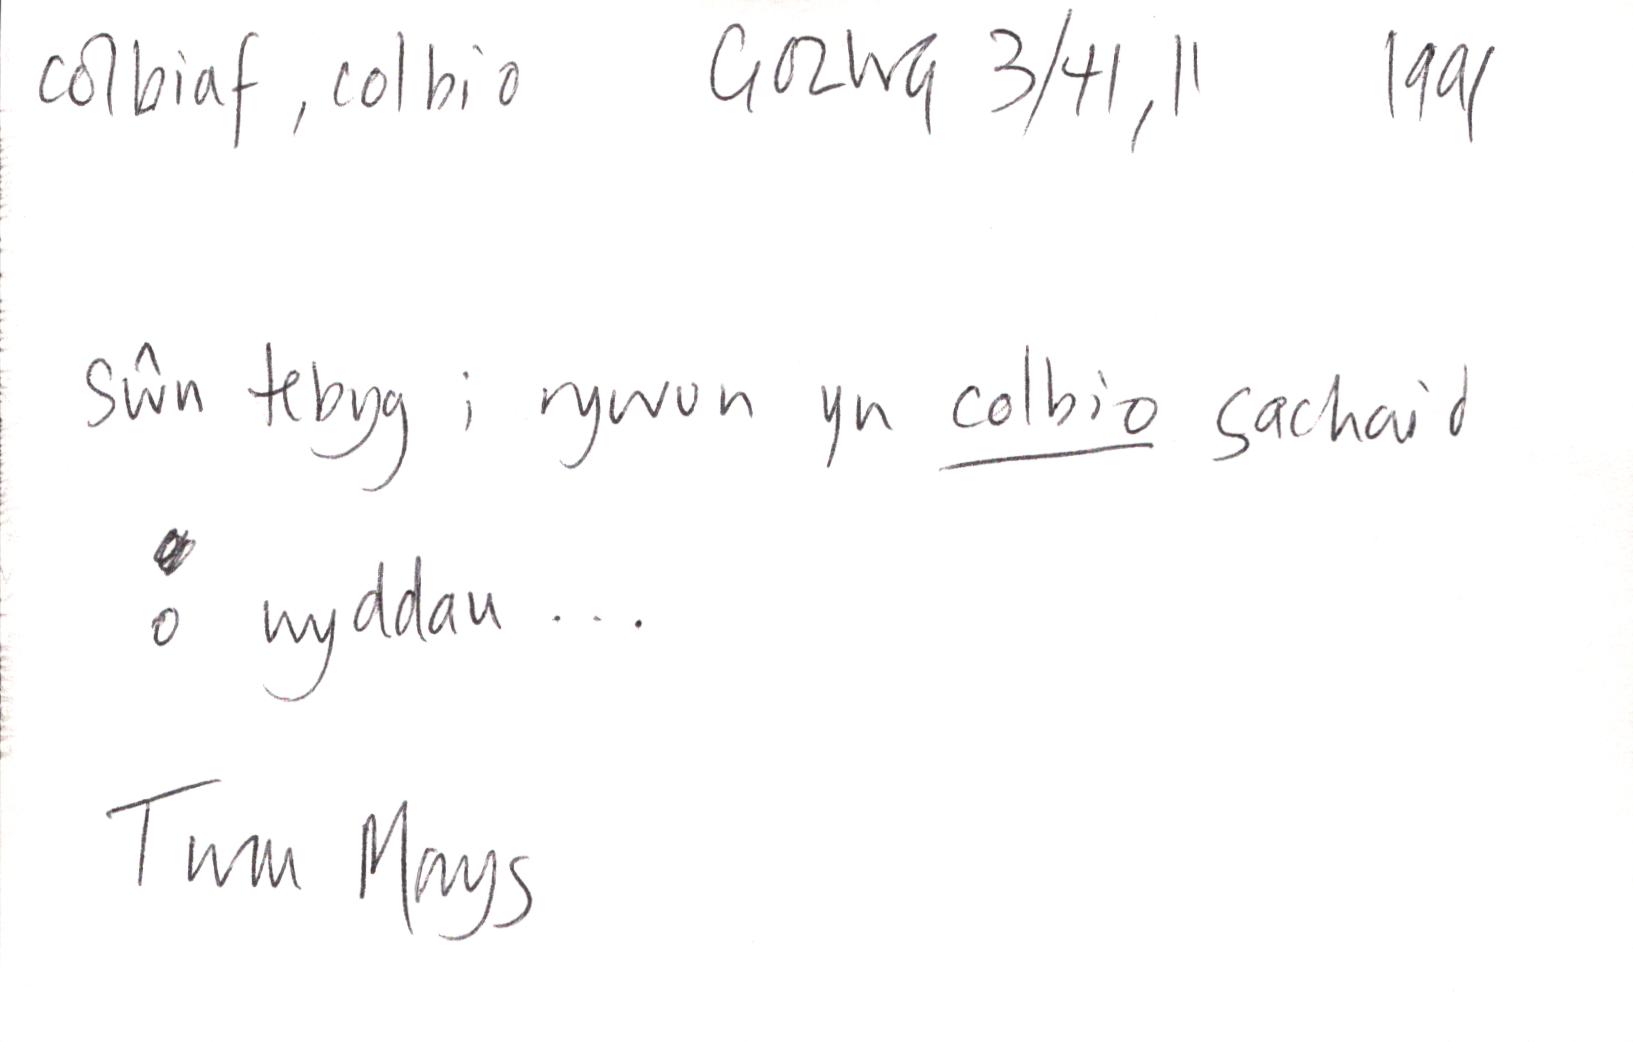 colbiaf, colbio GOLWG 3/41, 11 1991
Sŵn tebyg i rywun yn colbio sachaid
o wyddau ...
Twm Morys